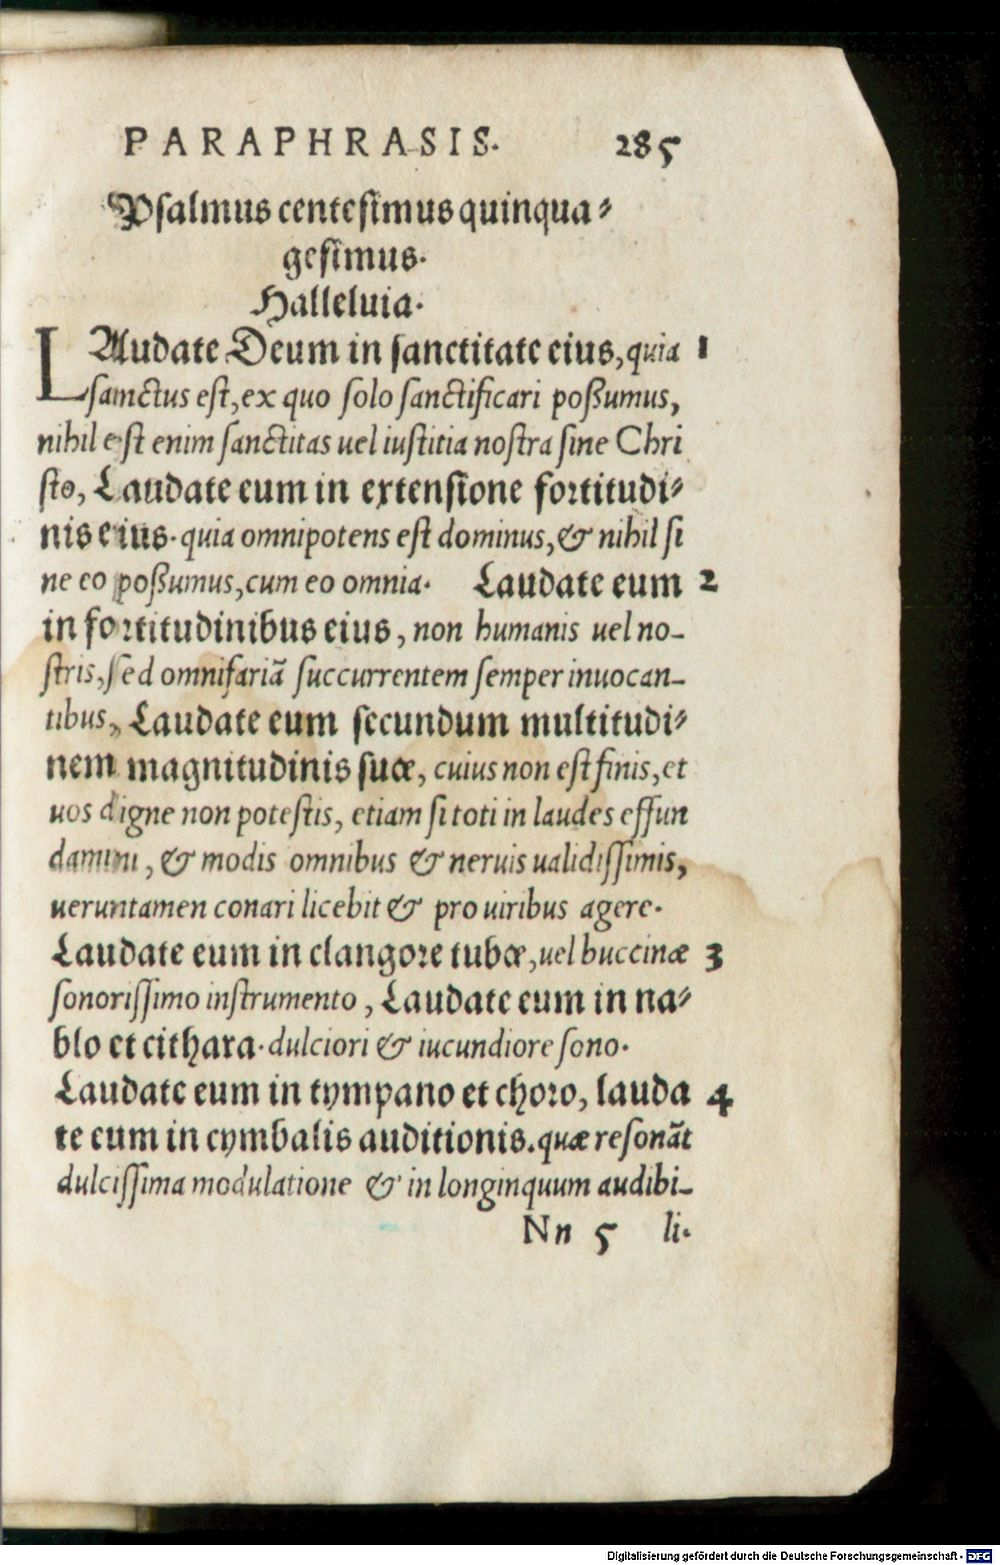 PARAPHRASIS. 285
Psalmus centesimus quinqua-
gesimus.
Halleluia.
LAudate Deum in sanctitate eius, quia 1
sanctus est, ex quo solo sanctificari poßumus,
nihil est enim sanctitas uel iustitia nostra sine Chri
sto, Laudate eum in extensione fortitudi-
nis eius. quia omnipotens est dominus, & nihil si
ne eo poßumus, cum eo omnia. Laudate eum 2
in fortitudinibus eius, non humanis uel no-
stris, sed omnifariā succurrentem semper inuocan-
tibus, Laudate eum secundum multitudi-
nem magnitudinis suæ, cuius non est finis, et
uos digne non potestis, etiam si toti in laudes effun
damini, & modis omnibus & neruis ualidissimis,
ueruntamen conari licebit & pro uiribus agere.
Laudate eum in clangore tubæ, uel buccinæ 3
sonorissimo instrumento, Laudate eum in na-
blo et cithara. dulciori & iucundiore sono.
Laudate eum in tympano et choro, lauda 4
te eum in cymbalis auditionis. quæ resonāt
dulcissima modulatione & in longinquum audibi-
Nn 5 li.
Digitalisierung gefördert durch die Deutsche Forschungsgemeinschaft - DFG